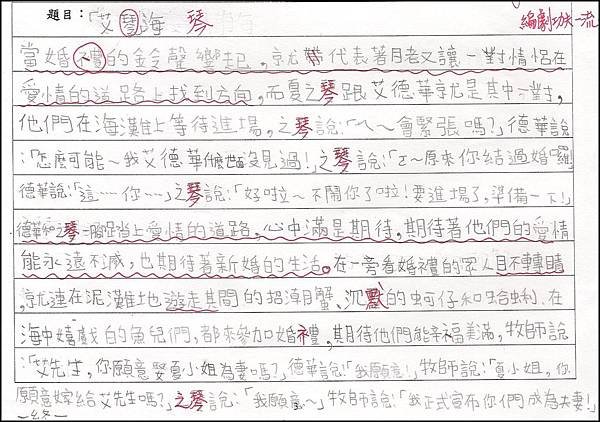 題目：「艾琴海 琴
編劇功一流
當婚禮的鈴聲響起，就代表著月老又讓一對情侶在
愛情的道路上找到方向，而夏之琴跟艾德華就是其中一對，
他們在海灘上等待進場，之琴說：「ㄟ～會緊張嗎？」德華說
：「怎麼可能～我艾德華什麼世面沒見過！」之琴說：「ㄛ～原來你結過婚囉」
德華說：「這…你…」之琴說：「好啦～不鬧你了啦！要進場了，準備一下！」
德華和之琴一腳踏上愛情的道路，心中滿是期待，期待著他們的愛情
能永遠不滅，也期待著新婚的生活。在一旁看婚禮的眾人目不轉睛
，就連在泥灘地游走其間的招潮蟹、沉默的蚵仔和蛤蜊、在
海中嬉戲的魚兒們，都來參加婚禮，期待他們能幸福美滿，牧師說
：「艾先生，你願意娶夏小姐為妻嗎？」德華說：「我願意！」牧師說：「夏小姐，你
願意嫁給艾先生嗎？」之琴說：「我願意～」牧師說：「我正式宣布你們成為夫妻！」
—終—